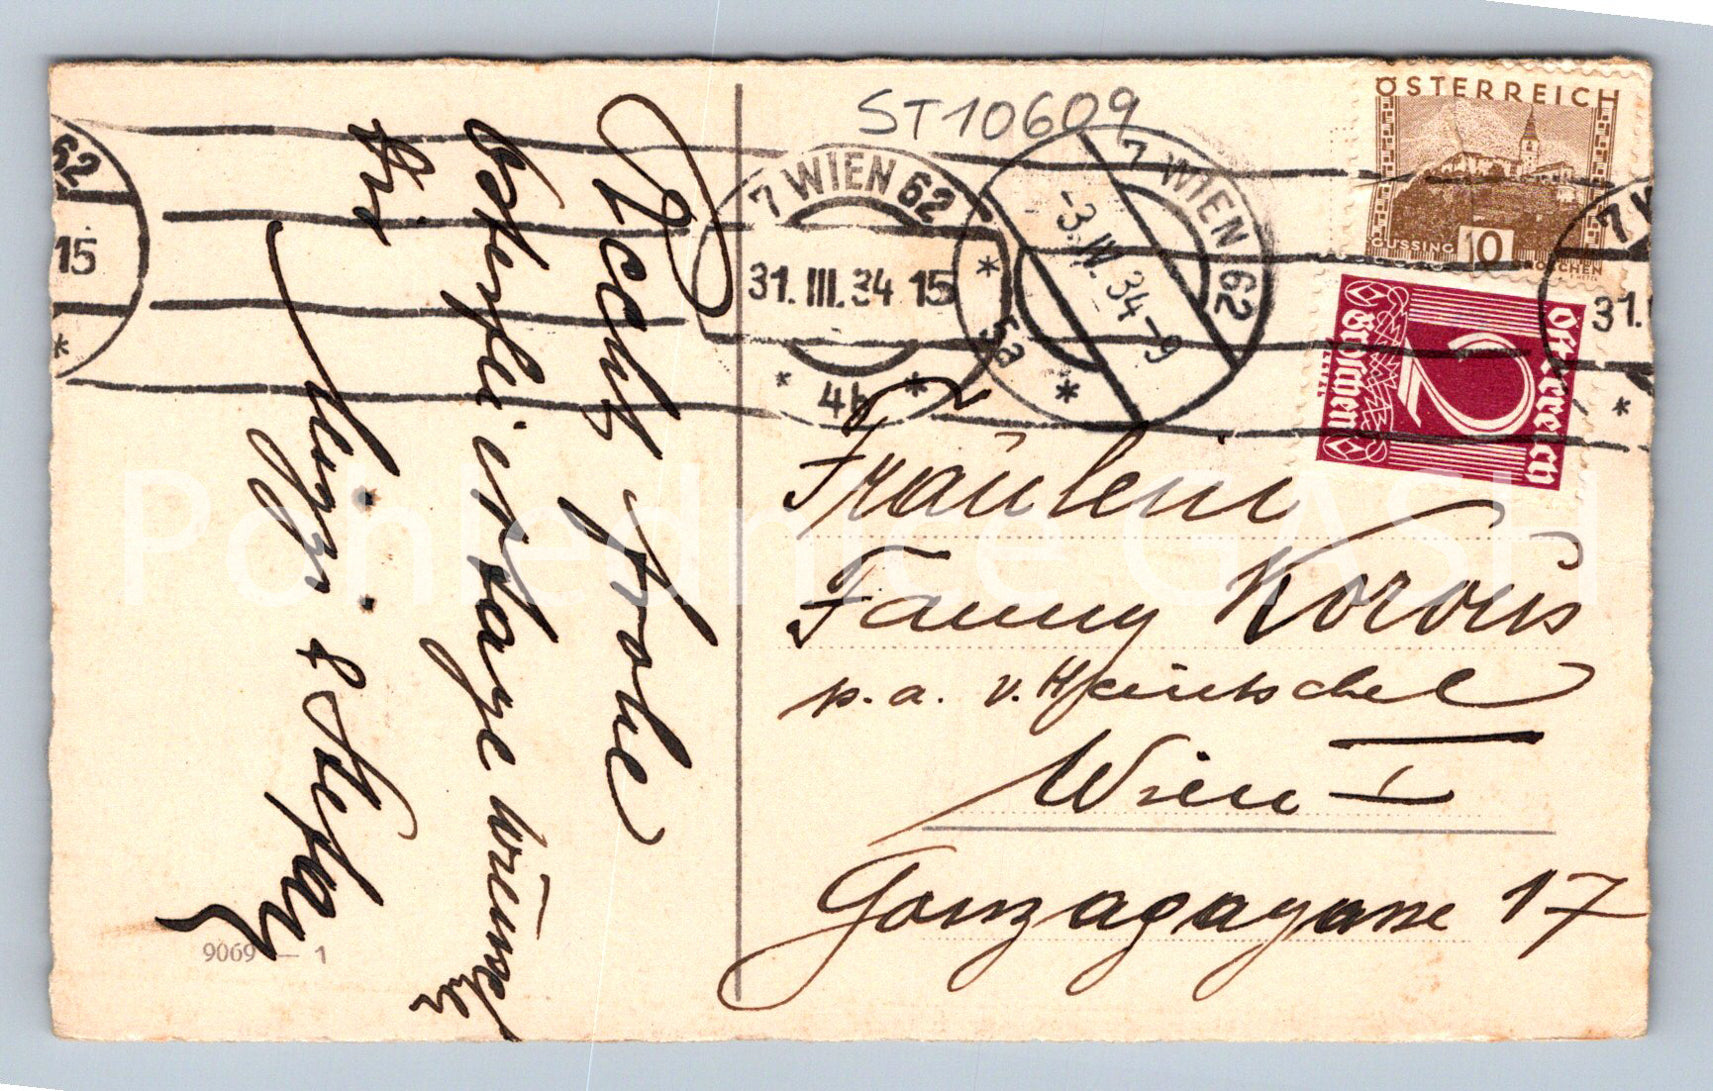 Recht frohe
Osterfeiertage wünschen
Dir
Mizzi & Stefan
9069 — 1
ST10609
7 WIEN 62
31. III. 34 15
* 4b *
7 WIEN 62
-3. IV. 34-9
* 5a *
62
15
*
7 W
31.
*
ÖSTERREICH
GÜSSING 10 GROSCHEN
Österreich
2
Groschen
Fräulein
Fanny
p. a. v. Heintschel
Wien I
Gonzagagasse 17
Pohlednice GASH